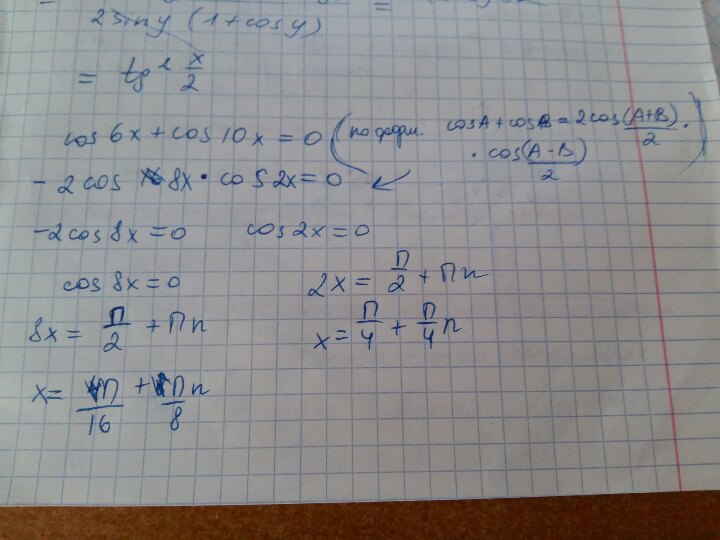 2siny (1+cosy)
= tg² x/2
cos 6x + cos 10x = 0 (по форм. cosA + cosB = 2cos (A+B)/2 ·
· cos (A-B)/2)
- 2 cos 8x · cos 2x = 0
-2cos 8x = 0 cos 2x = 0
cos 8x = 0 2x = П/2 + Пn
8x = П/2 + Пn x = П/4 + П/4 n
x = П/16 + П/8 n